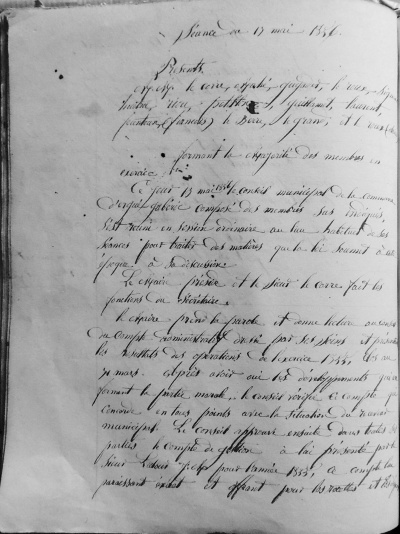 Séance du 17 mai 1856.
Présents
M.M. le corre, Mahé, quéguen, le roux,
guillermet, Laurent
(françois) le Berre, le grand, et le roux
formant la Majorité des membres en
exercice.
Ce jour 17 mai 1856 le conseil municipal de la commune
d'ergué-gabéric composé des membres sus indiqués,
s'est réuni en session ordinaire au lieu habituel de ses
séances pour traiter des matières que la loi soumet à cette
époque à sa discussion.
Le Maire préside et le sieur le corre fait les
fonctions de secrétaire.
Le Maire prend la parole et donne lecture au conseil
du compte administratif dressé par ses soins et présentant
les résultats des opérations de l'exercice 1855, clos au
31 mars. Après avoir ouï les développements qui
forment la partie morale, le conseil vérifie ce compte qui
concorde en tous points avec la situation du receveur
municipal. Le Conseil approuve ensuite dans toutes ses
parties le compte de gestion à lui présenté par le
Sieur pour l'année 1855, ce compte lui
paraissant exact et offrant pour les recettes et les